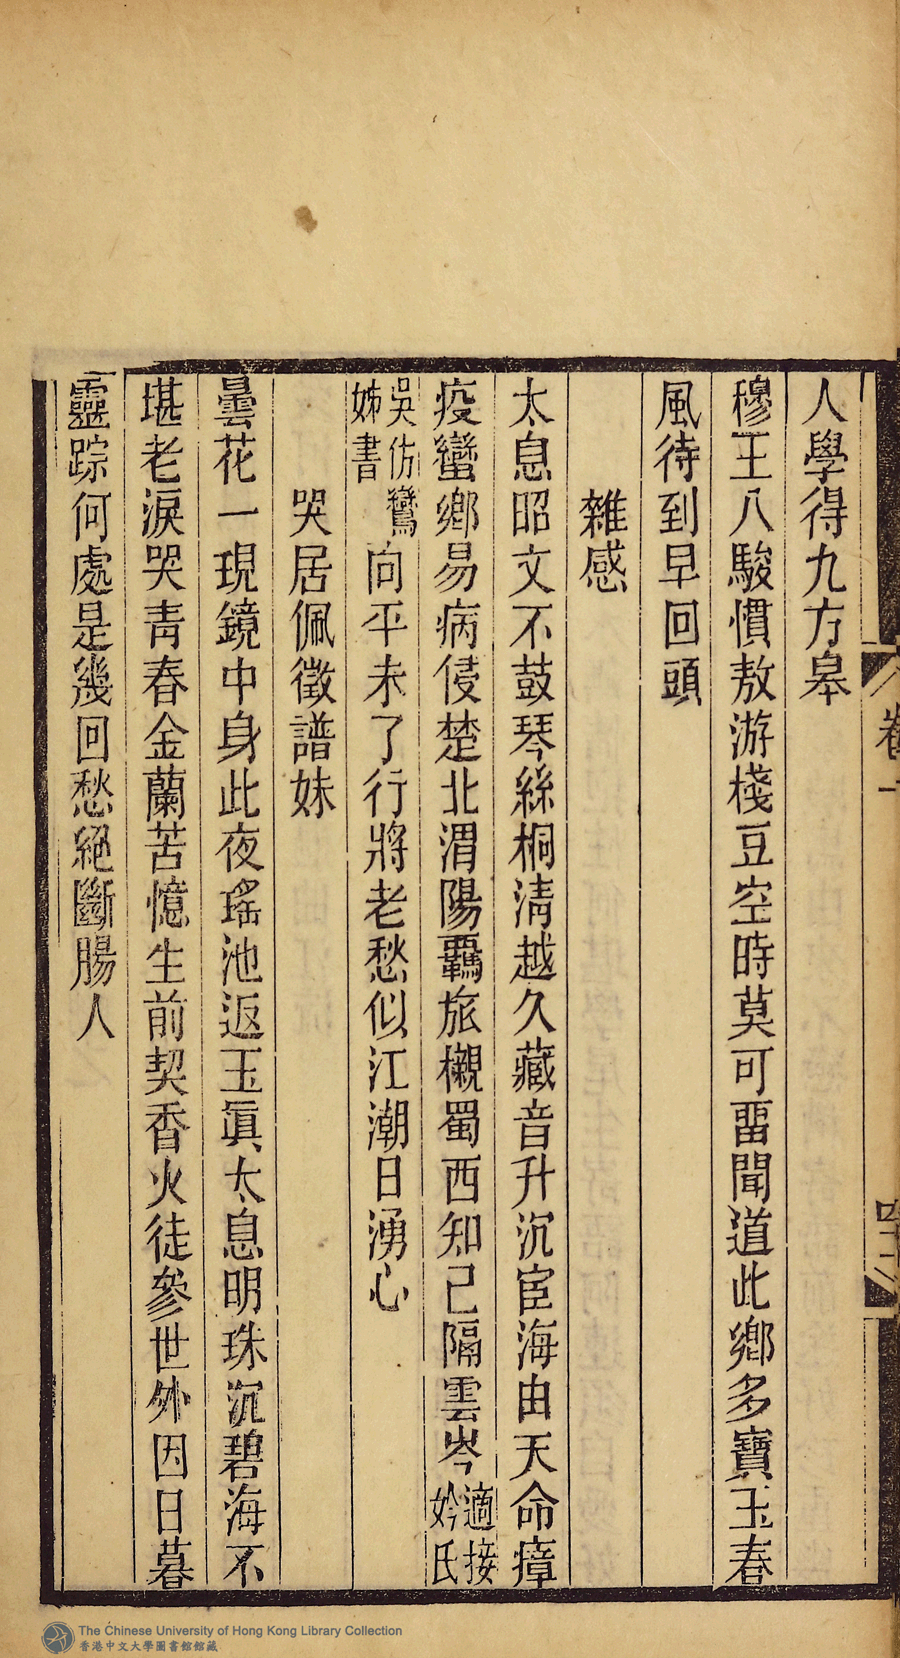 人學得九方皋
穆王八駿慣敖游棧豆空時莫可畱聞道此鄉多寶玉春
風待到早回頭
雜感
太息昭文不鼓琴絲桐清越久藏音升沉宦海由天命瘴
疫蠻鄉易病侵楚北渭陽羈旅櫬蜀西知己隔雲岑適接妗氏
吳仿鸞姊書向平未了行將老愁似江潮日湧心
哭居佩徵譜妹
曇花一現鏡中身此夜瑤池返玉眞太息明珠沉碧海不
堪老淚哭青春金蘭苦憶生前契香火徒參世外因日暮
靈踪何處是幾回愁絕斷腸人
The Chinese University of Hong Kong Library Collection
香港中文大學圖書館館藏